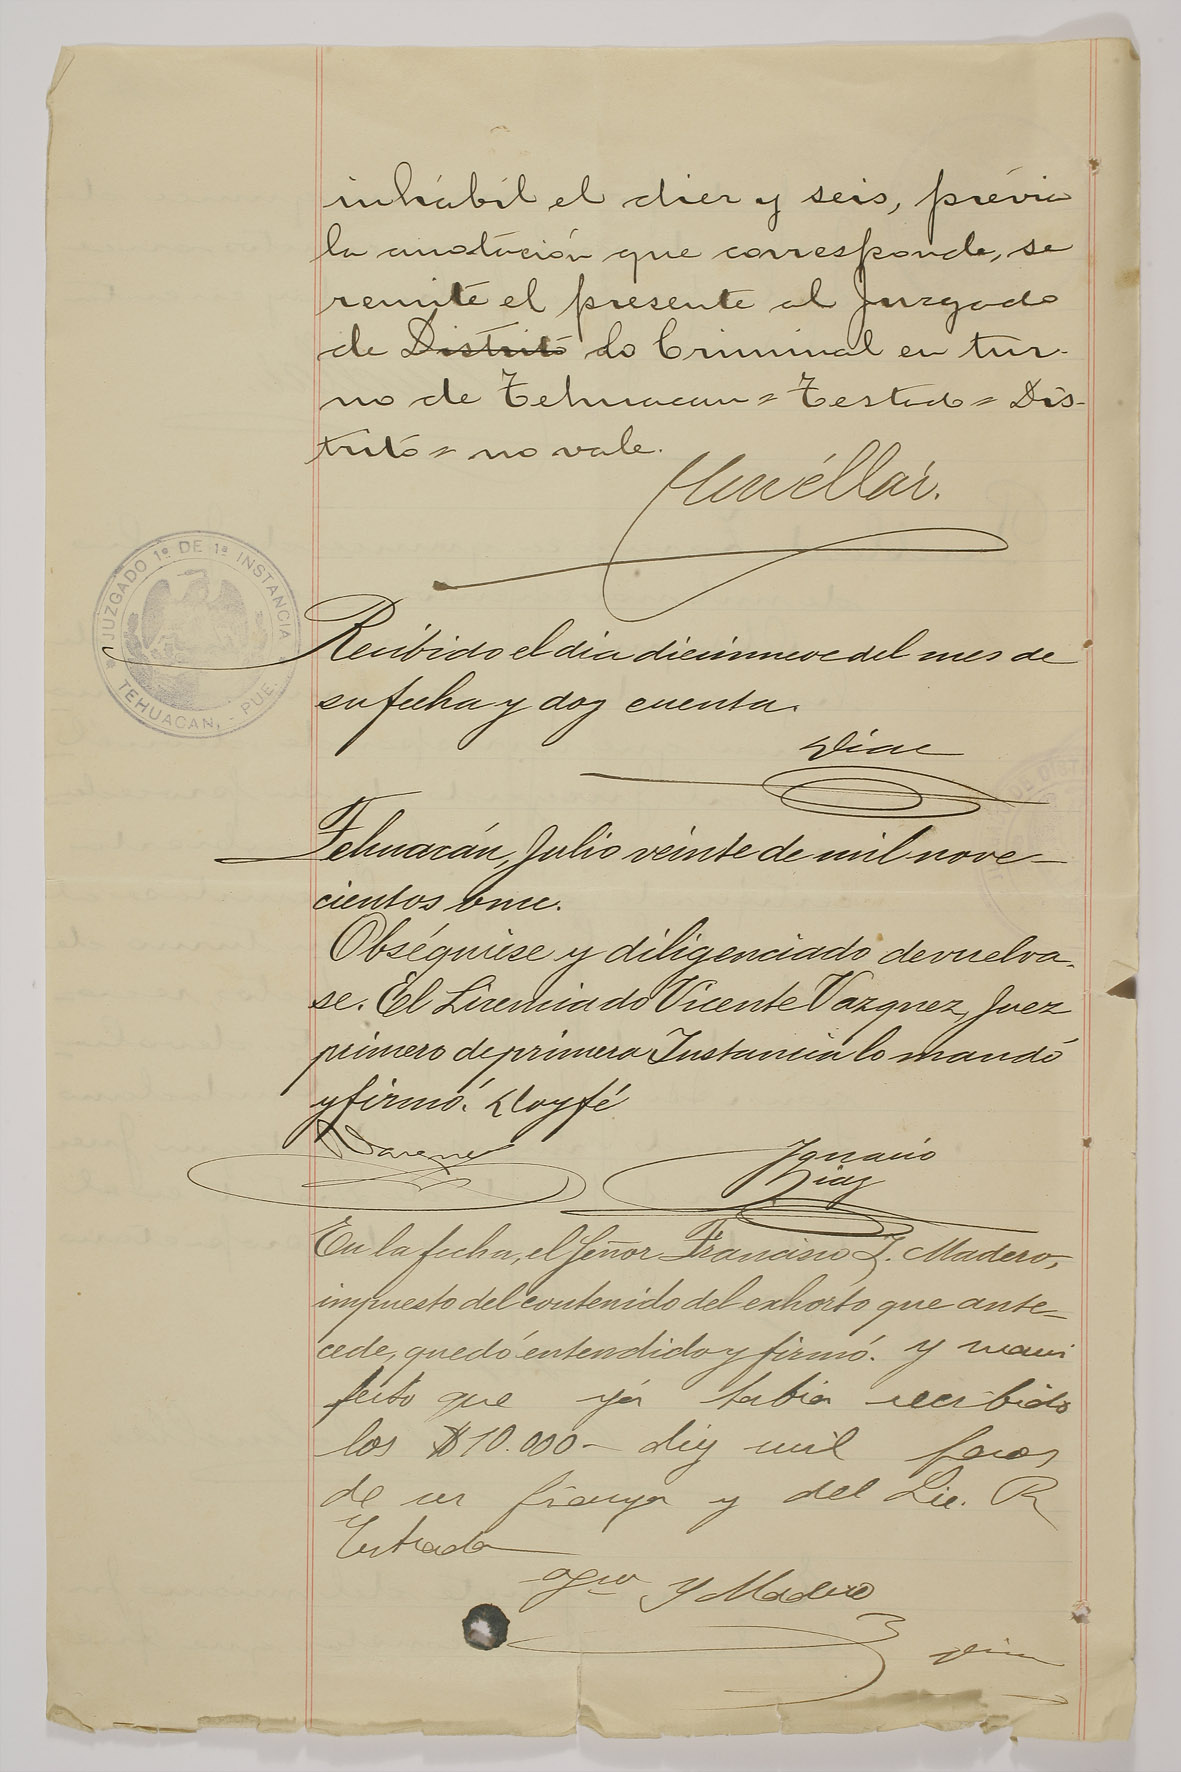 inhábil el diez y seis, prévia
la anotación que corresponde, se
remite el presente al Juzgado
de Distrito lo Criminal en tur-
no de Tehuacan = Testado = Dis-
trito = no vale.
Cuéllar.
JUZGADO 1º DE 1ª INSTANCIA
TEHUACAN, - PUE.
Recibido el dia diecinueve del mes de
su fecha y doy cuenta.
Diaz
Tehuacán, Julio veinte de mil nove-
cientos once.
Obséquiese y diligenciado devuelva-
se. El Licenciado Vicente Vazquez, Juez
primero de primera Instancia lo mandó
y firmó. Doy fé
Vazquez
Ignacio
Diaz
En la fecha, el Señor Francisco I. Madero,
impuesto del contenido del exhorto que ante-
cede, quedó entendido y firmó. y mani
festo que ya habia recibido
los $10.000- diez mil pesos
de su fianza y del Lic. R
Estrada
Fco I Madero
Diaz